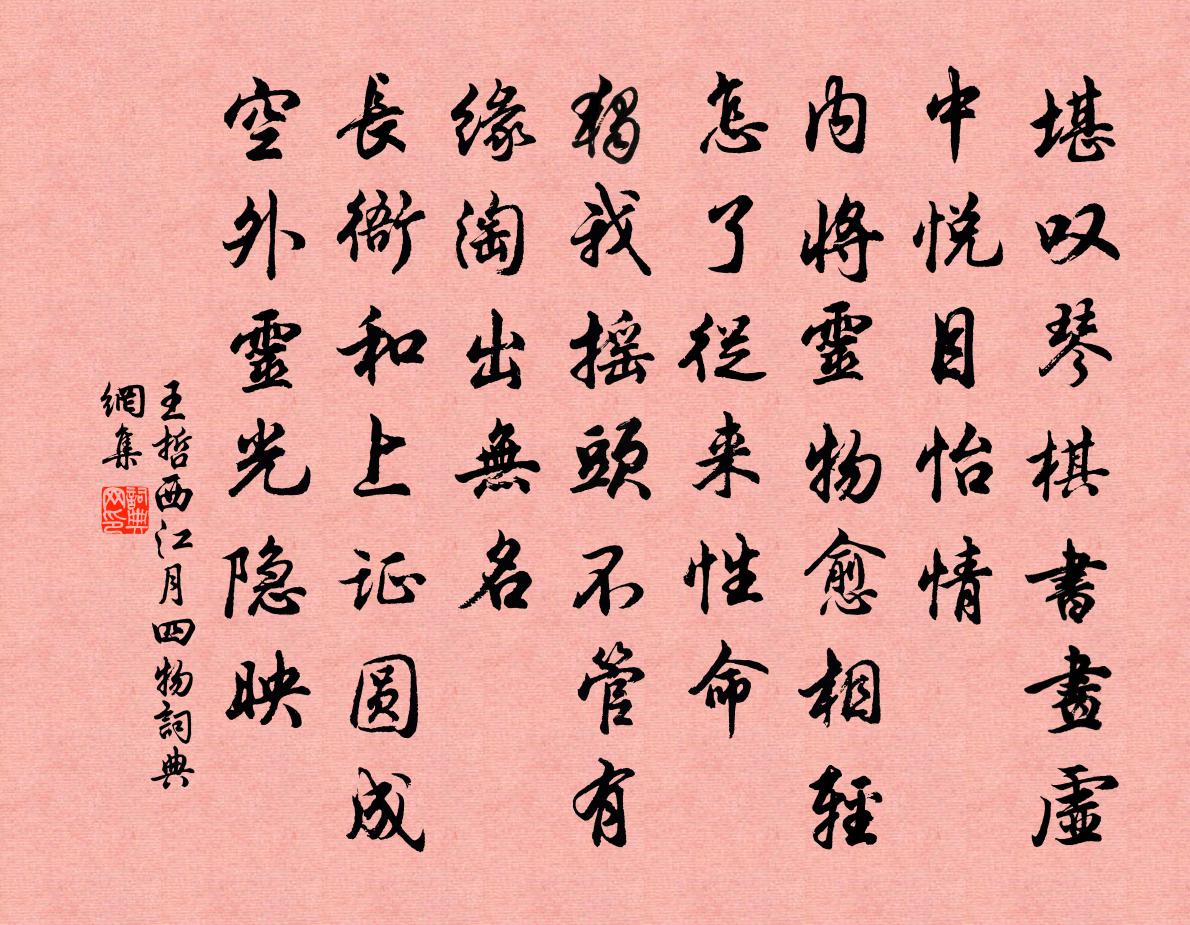 堪叹琴棋書畫虛
中悦目怡情
内將靈物愈相輕
怎了従来性命
獨我摇頭不管有
緣淘出無名
長衙和上证圆成
空外靈光隐映
王哲西江月四物詞典
網集
詞典网印